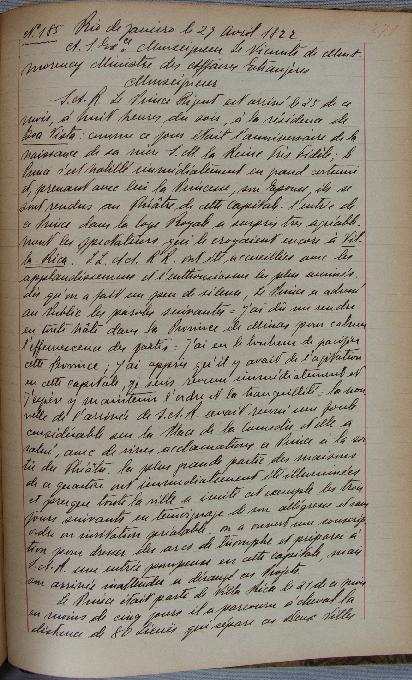 Nº 185 Rio de Janeiro le 29 Avril 1822
A. S. Exce. Monseigneur Le Vicomte de Mont-
morency Ministre des Affaires Etrangères
Monseigneur
S.A.R. Le Prince Régent est arrivé le 25 de ce
mois, à huit heures du soir, à la résidence de
Boa Vista: comme ce jour était l'anniversaire de la
naissance de sa mère S.M. la Reine très Fidèle; le
Prince s'est habillé immédiatement en grand costume
et, prenant avec lui la Princesse, son Epouse, ils se
sont rendus au théâtre de cette Capitale. L'entrée de
ce Prince dans la loge Royale a surpris très agréable-
ment les spectateurs qui le croyaient encore à Vil-
la Rica. LL. A. R. R. ont été accueillies avec les
applaudissements et l'enthousiasme les plus animés.
dès qu'on a fait un peu de silence, le Prince a adressé
au Public les paroles suivantes = j'ai dû me rendre
en toute hâte dans la Province de Minas pour calmer
l'effervescence des partis = J'ai eu le bonheur de pacifier
cette Province; J'ai appris qu'il y avait de l'agitation
en cette capitale, je suis revenu immédiatement et
j'espère y maintenir l'ordre et la tranquillité = la nou-
velle de l'arrivée de S.A.R. avait réuni une foule
considérable sur la Place de la Comédie et elle a
salué, avec de vives acclamations ce Prince à la sor-
tie du théâtre. la plus grande partie des maisons
de ce quartier ont immédiatement été illuminées
et presque toute la ville a imité cet exemple les trois
jours suivants en témoignage de son allégresse et sans
ordre ou invitation préalable. on a ouvert une souscrip-
tion pour dresser des arcs de triomphe et préparer à
S.A.R. une entrée pompeuse en cette capitale, mais
son arrivée inattendue a dérangé ces Projets.
Le Prince était parti de Villa Rica le 21 de ce mois
en moins de cinq jours il a parcouru à cheval la
distance de 80 Lieues qui sépare ces deux Villes